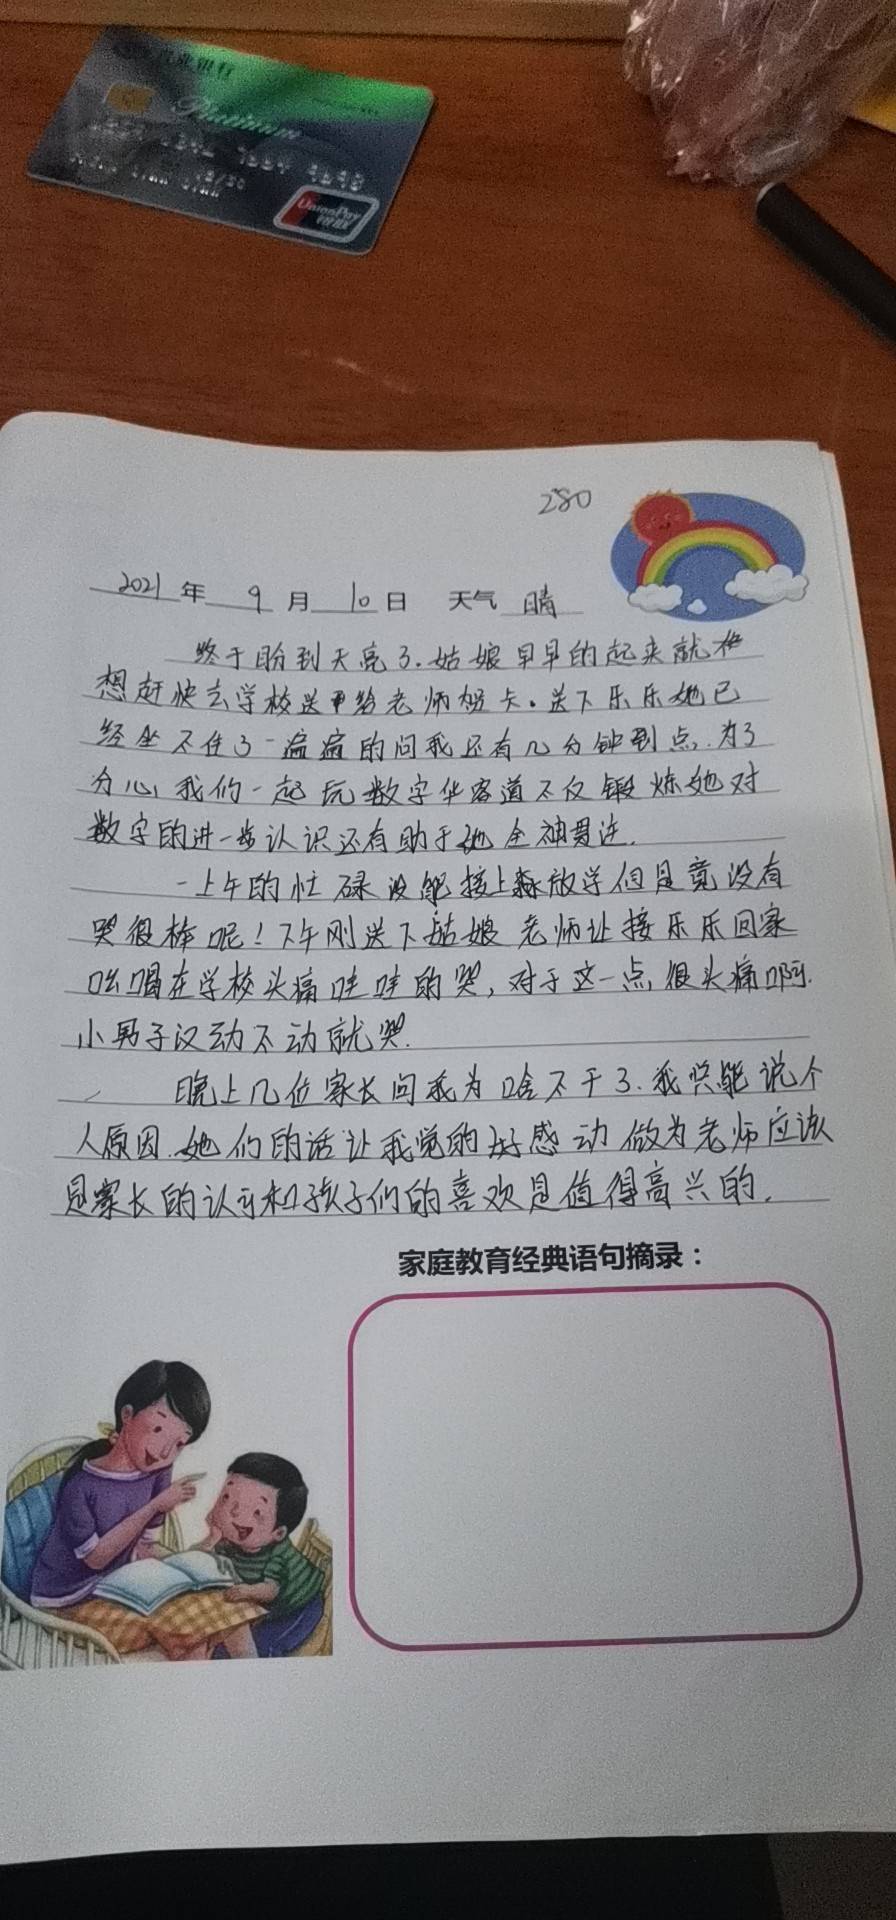 Platinum
UnionPay
银联
280
2021年 9月10日 天气 晴
终于盼到天亮了.姑娘早早的起来就
想赶快去学校送给老师贺卡。送下乐乐她已
经坐不住了一遍遍的问我还有几分钟到点.为了
分心我们一起玩数字华容道不仅锻炼她对
数字的进一步认识还有助于她全神贯注.
一上午的忙碌没能接上放学但是竟没有
哭很棒呢!下午刚送下姑娘老师让接乐乐回家
吆喝在学校头痛哇哇的哭,对于这一点很头痛啊.
小男子汉动不动就哭.
晚上几位家长问我为啥不干了.我只能说个
人原因.她们的话让我觉的好感动做为老师应该
是家长的认可和孩子们的喜欢是值得高兴的.
家庭教育经典语句摘录：